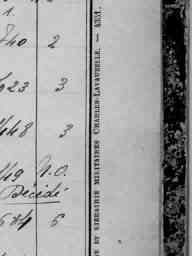 1.
740 2
623 3
448 3
149 N.O.
Décédé
684 6
IE ET LIBRAIRIE MILITAIRES CHARLES-LAVAUZELLE. —